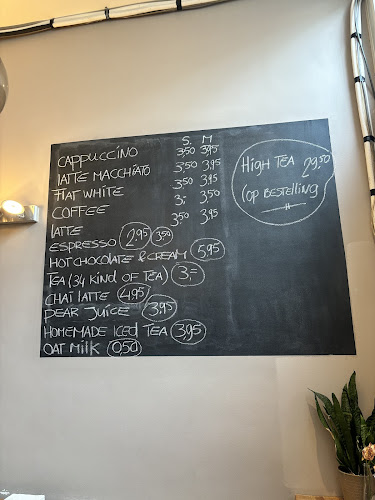 S. M
CAPPUCCINO 3,50 3,95
LATTE MACCHIATO 3,50 3,95
FLAT WHITE 3,50 3,95
COFFEE 3,- 3,50
LATTE 3,50 3,95
ESPRESSO 2,95 3,50
HOT CHOCOLATE & CREAM 5,95
TEA (34 KIND OF TEA) 3,=
CHAI LATTE 4,95
PEAR JUICE 3,95
HOMEMADE ICED TEA 3,95
OAT MILK 0,50
HIGH TEA 29,50
(OP BESTELLING